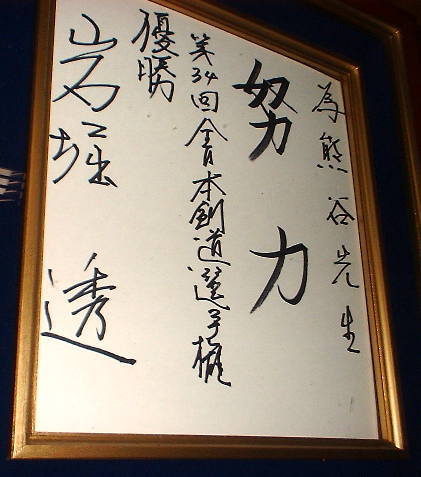 為熊谷先生
努力
第34回全日本剣道選手権
優勝
岩堀透